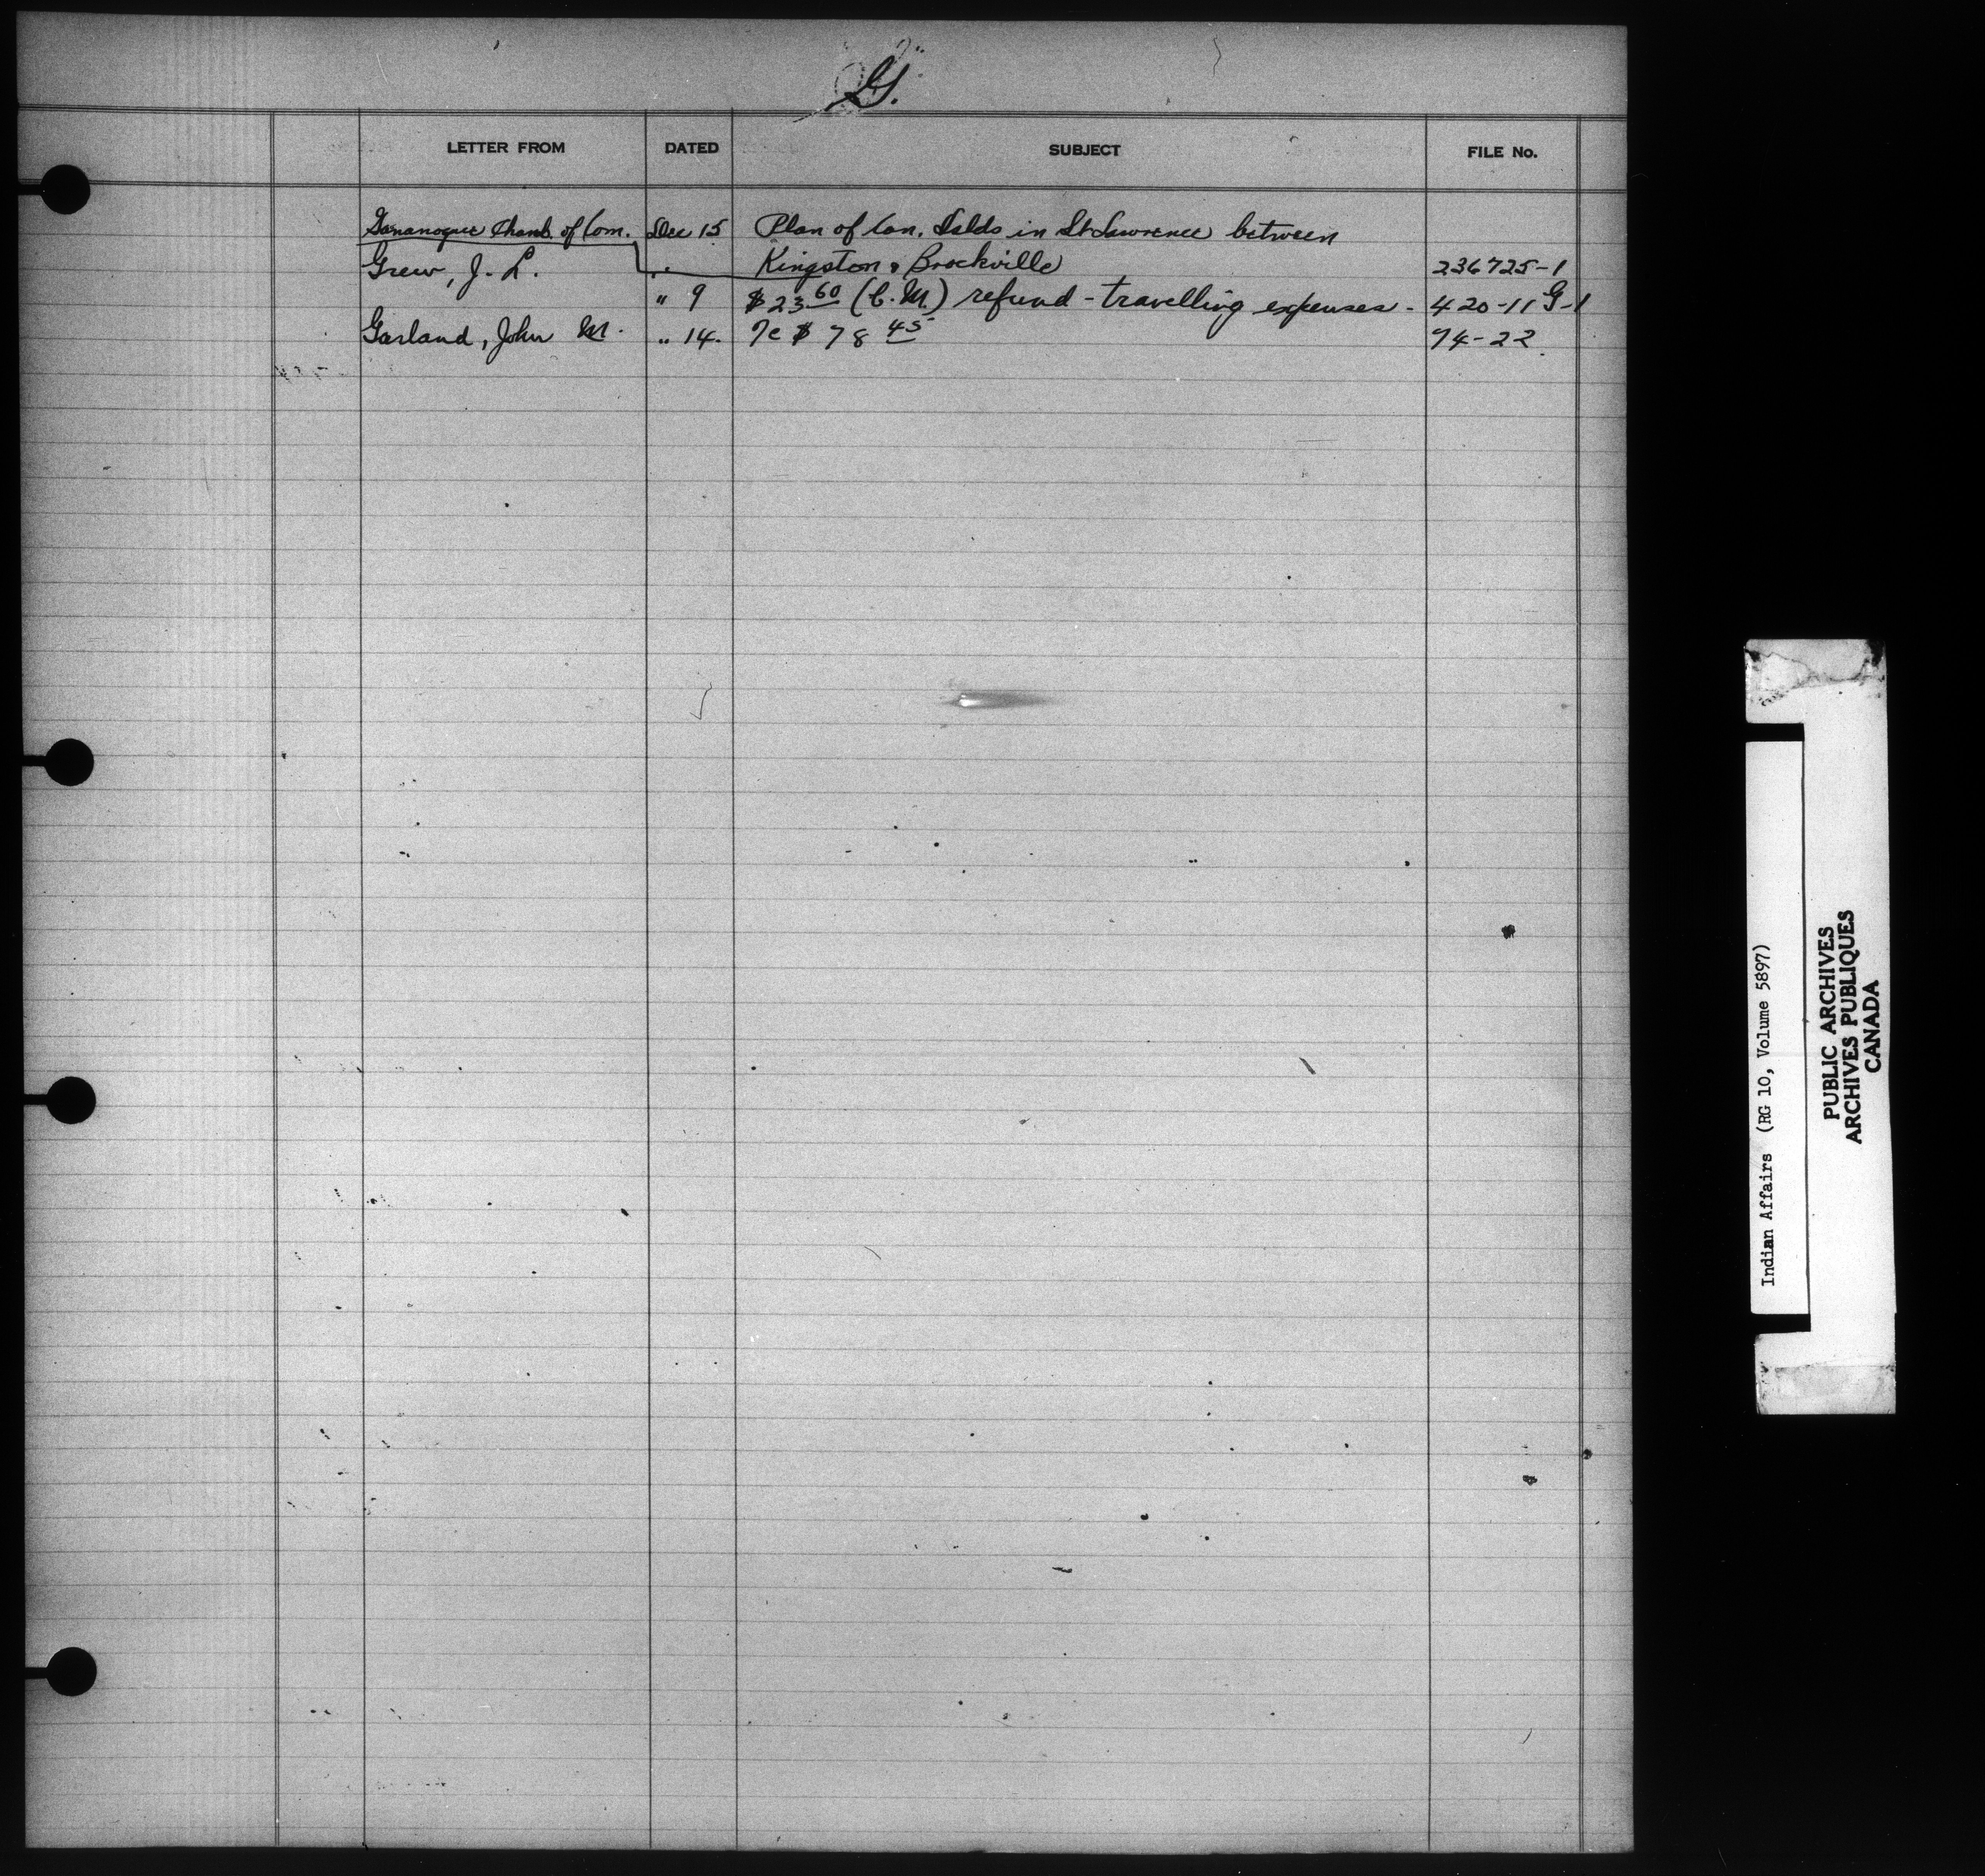 G.
LETTER FROM DATED SUBJECT FILE No.
Gananoque Chamb. of Com. Dec 15 Plan of Can. Islds in St Lawrence between
Grew, J. L. Kingston & Brockville 236725-1
" 9 $23.60 (C.M.) refund - travelling expenses - 420-11 G-1
Garland, John M. " 14. Re $78 45 74-22
Indian Affairs (RG 10, Volume 5897)
PUBLIC ARCHIVES
ARCHIVES PUBLIQUES
CANADA